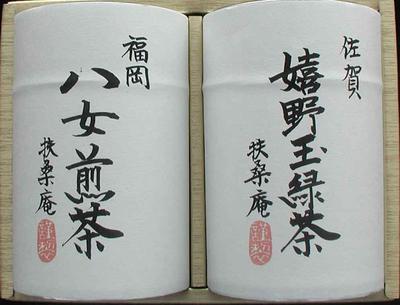 佐賀
嬉野玉緑茶
扶桑庵
謹製
福岡
八女煎茶
扶桑庵
謹製